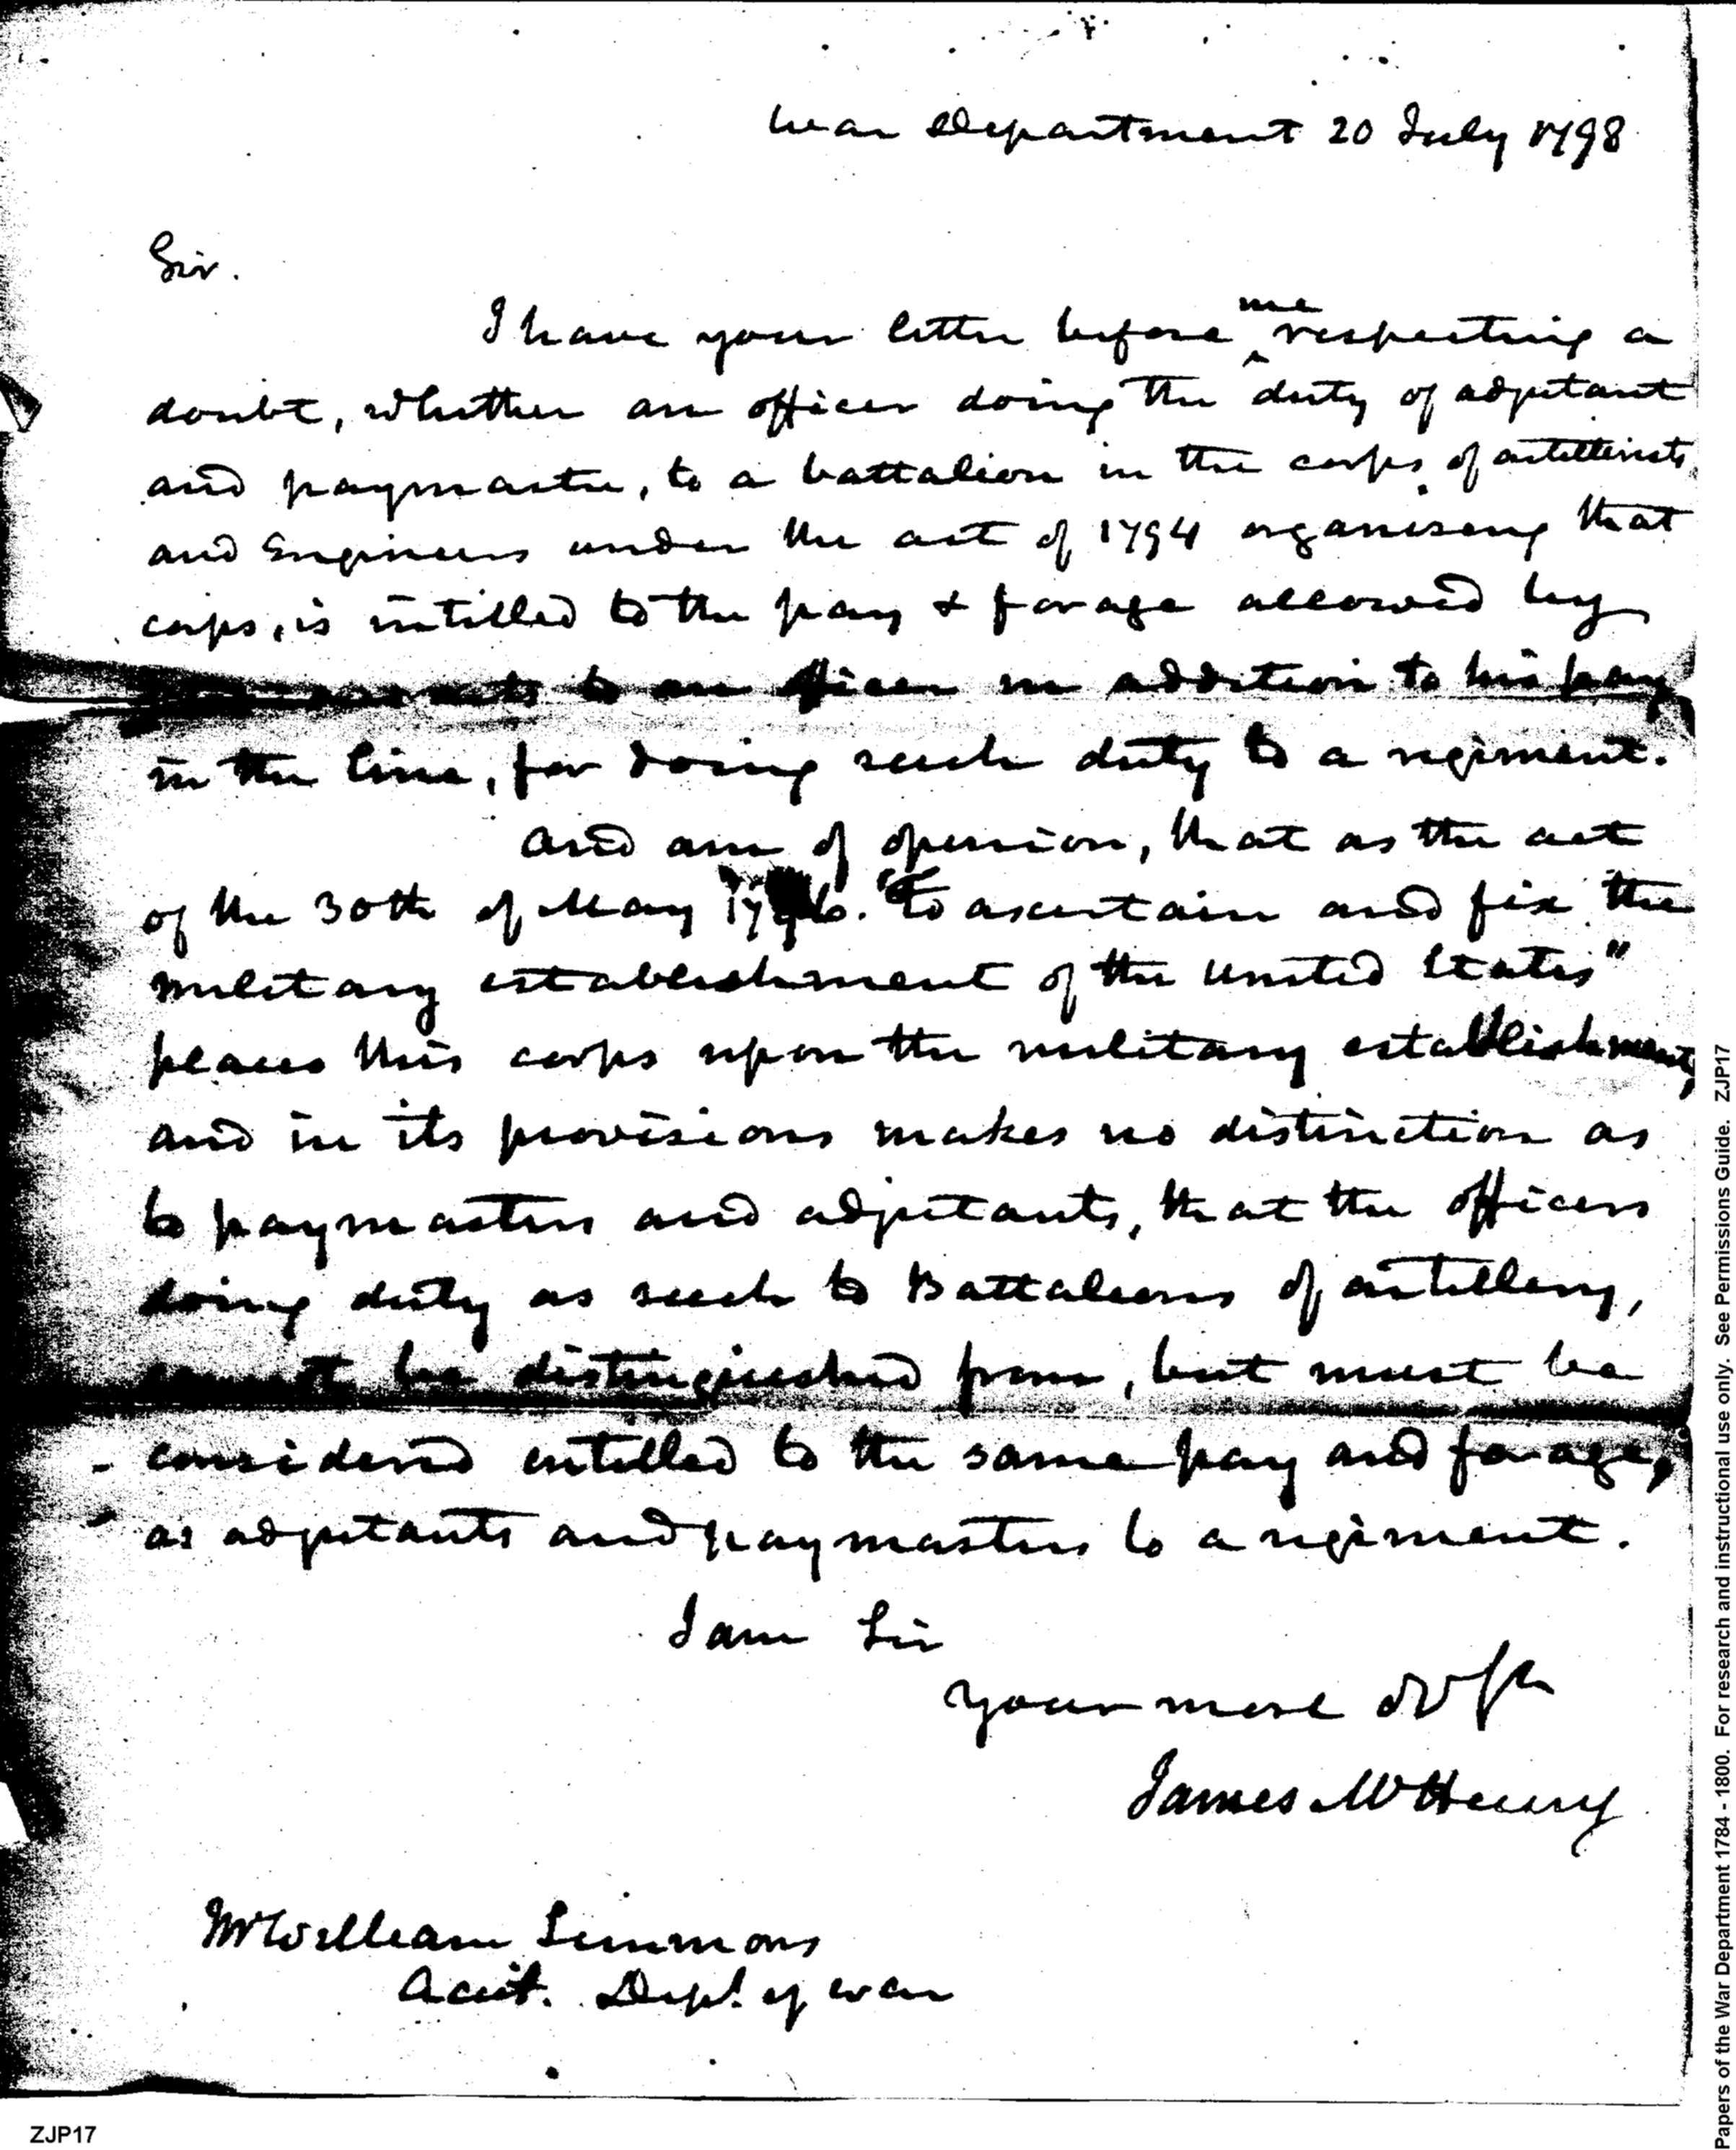 War Department 20 July 1798
Sir.
I have your letter before me respecting a
doubt, whether an officer doing the duty of adjutant
and paymaster, to a battalion in the corps of artillerists
and Engineers under the act of 1794 organising that
corps, is intitled to the pay & forage allowed by
acts to an officer in addition to his pay
in the line, for doing such duty to a regiment.
And am of opinion, that as the act
of the 30th of May 1796. "To ascertain and fix the
military establishment of the United States"
places this corps upon the military establishment,
and in its provisions makes no distinction as
to paymasters and adjutants, that the officers
doing duty as such to Battalions of artillery,
cannot be distinguished from, but must be
considered intitled to the same pay and forage,
as adjutants and paymasters to a regiment.
I am Sir
your most
James McHenry
Mr William Simmons
Acct. Dept. of war
ZJP17
Papers of the War Department 1784 - 1800. For research and instructional use only. See Permissions Guide. ZJP17